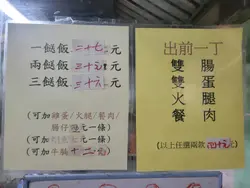 一餸飯 二十七元
兩餸飯 三十元
三餸飯 三十六元
(可加雞蛋/火腿/餐肉/
腸仔 元一條)
(可加 元一條)
(可加 十二元)
出前一丁
雙腸
雙蛋
火腿
餐肉
(以上任選兩款 四十元)